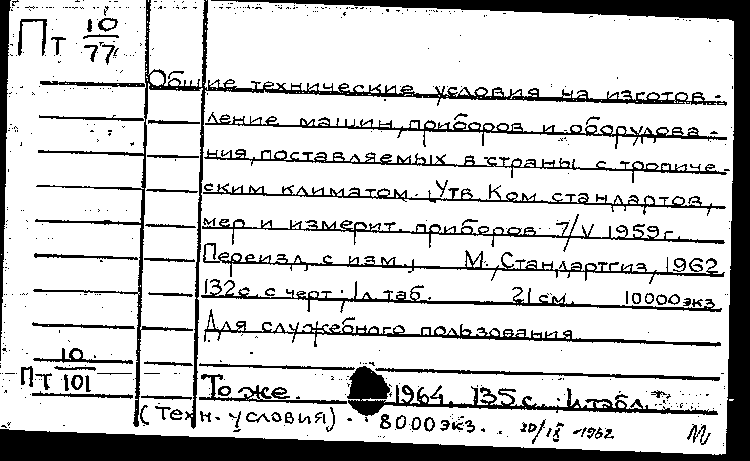 Пт 10/77
Общие технические условия на изготов-
ление машин, приборов и оборудова-
ния, поставляемых в страны с тропиче-
ским климатом. Утв. Ком. стандартов,
мер и измерит. приборов 7/V 1959 г.
Переизд. с изм., М., Стандартгиз, 1962
132 с. с черт.; 1 л. таб. 21 см. 10000 экз
Для служебного пользования
Пт 10/101
То же. 1964. 135 с. 1 л. табл.
(Техн. условия) 8000 экз.